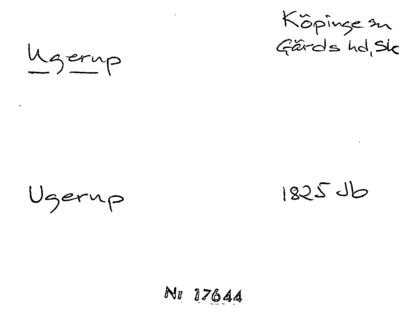 Ugerup
Köpinge sn
Gärds hd, Sk
Ugerup
1825 Jb
Nr 17644